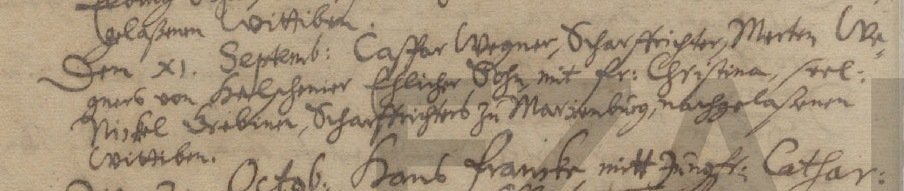 gelaßenen Wittiben.
Den XI. Septemb: Caspar Wegner, Scharfrichter, Merten We-
gners von Ehlicher Sohn, mit fr: Christina, seel:
Nickel Scharfrichters zu Marienburg, nachgelaßenen
Wittiben.
Octob: Hans Francke, mitt Jungfr: Cathar: